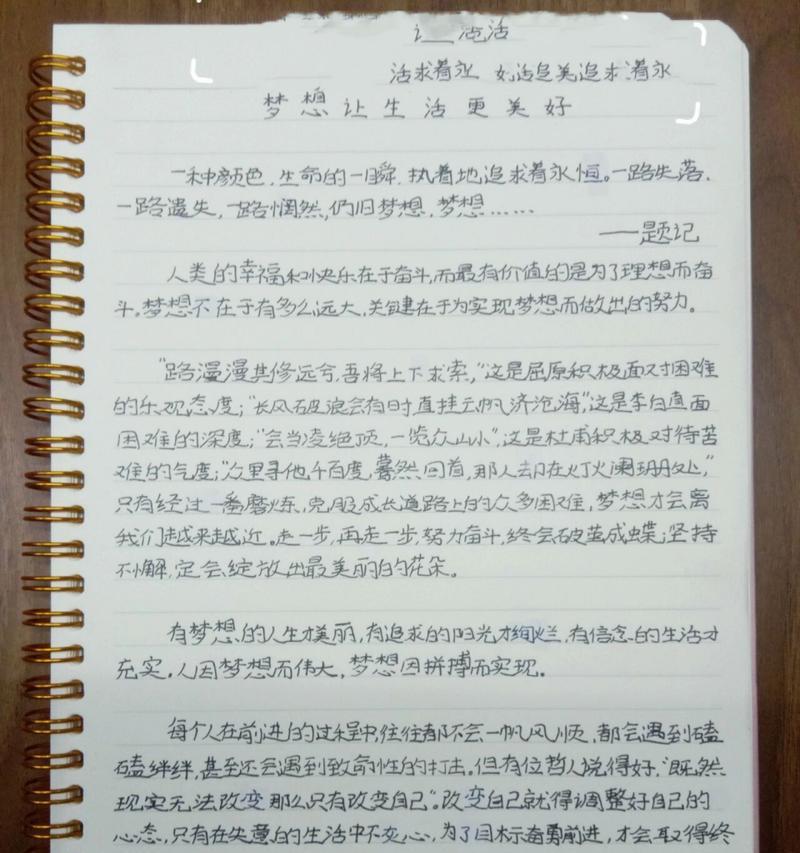 活
活求着永 好活追美追求着永
梦想让生活更美好
一种颜色，生命的一瞬，执着地追求着永恒。一路失落，
一路遗失，一路惆然，仍旧梦想，梦想……
——题记
人类的幸福和快乐在于奋斗，而最有价值的是为了理想而奋
斗。梦想不在于有多么远大，关键在于为实现梦想而做出的努力。
“路漫漫其修远兮，吾将上下求索，”这是屈原积极面对困难
的乐观态度；“长风破浪会有时直挂云帆济沧海，”这是李白直面
困难的深度；“会当凌绝顶，一览众山小”，这是杜甫积极对待苦
难的气度；“众里寻他千百度，蓦然回首，那人却在灯火阑珊处，”
只有经过一番磨炼，克服成长道路上的众多困难，梦想才会离
我们越来越近。走一步，再走一步，努力奋斗，终会破茧成蝶；坚持
不懈，定会绽放出最美丽的花朵。
有梦想的人生才美丽，有追求的阳光才绚烂，有信念的生活才
充实。人因梦想而伟大，梦想因拼搏而实现。
每个人在前进的过程中往往都不会一帆风顺，都会遇到磕
磕绊绊，甚至还会遇到致命性的打击。但有位哲人说得好，“既然
现实无法改变那么只有改变自己”。改变自己就得调整好自己的
心态，只有在失意的生活中不灰心，为了目标奋勇前进，才会取得终